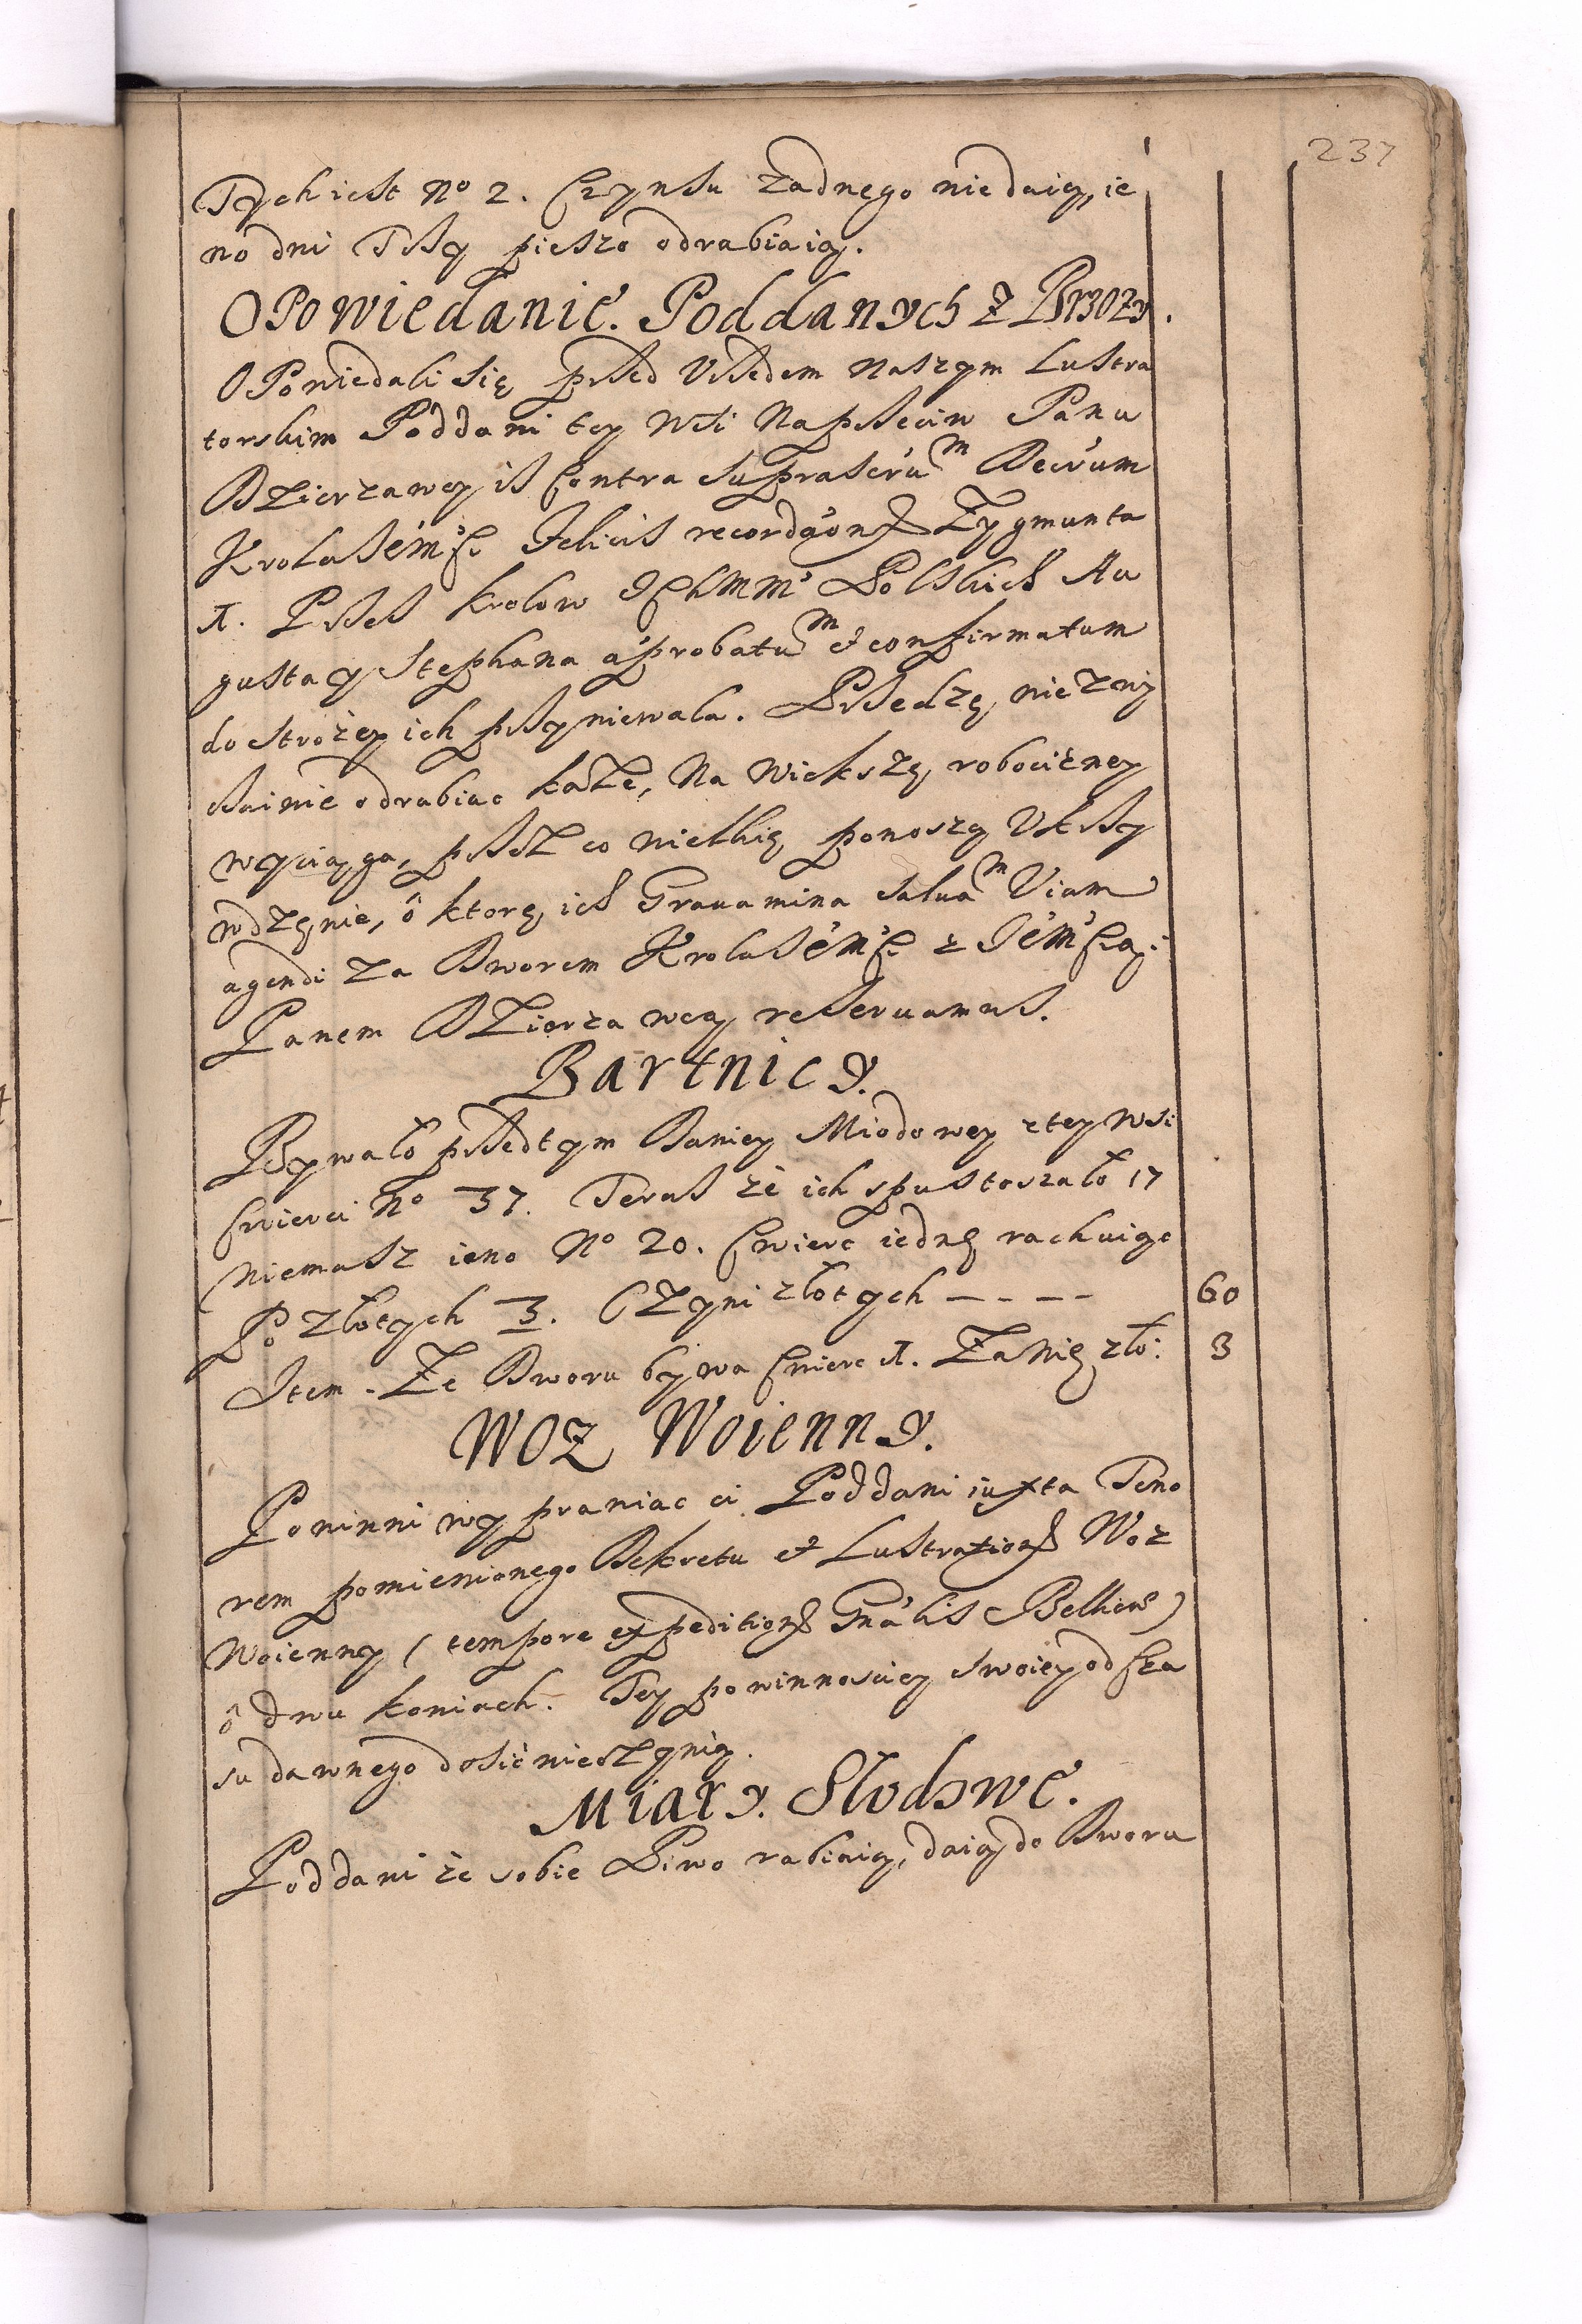 237
Tych iest No 2. Czynsu żadnego niedaią, ie
no dni Trzy pieszo odrabiaią.
OPowiedanie. Poddanych z Brzozy.
OPowiedali się przed Vrzędem Naszym Lustra
torskim Poddani tey Wsi Naprzeciw Panu
Dzierzawcy iż Contra supra scrū m Decrum
Krola Je'm'Ci Felicis recordaōnis Zygmunta
I. Przez krolow JchMM' Polskich Au
gusta y Stephana áprobatū m et confirmatum
do strożey ich przyniewala. Przędzę niezwy
czainie odrabiac każe, Na Wiekszę robociznę
wyciąga, przez co wielkię ponoszą Vkrzy
wdzęnie, ô ktorę ich Grauamina salua m Viam
agendi za Dworem Krola Je'm'Ci z Je'm'Cią:
Panem Dzierzawcą reseruamus.
Bartnicy.
Bywało przedtym Daniey Miodowey z tey Wsi
Cwierci No 37. Teraz że ich spustoszało 17
Niemasz ieno No 20. Cwierc iednę rachuiąc
Po złotych 3. CZyni złotych ---- 60
Item. Ze Dworu bywa Cwierc I. Zanię zło: 3
WOZ Woienny.
Powinni wyprawiac ci Poddani iuxta Teno
rem pomienionego Dekretu et Lustrationis Woz
Woienny (tempore expeditionis Gnālis Bellicae)
ô dwu koniach. Tey powinnosciey swoiey od Cza
su dawnego dosić nieczynią.
Miary. Słodowe.
Poddani że sobie Piwo rabiaią, daią do Dworu